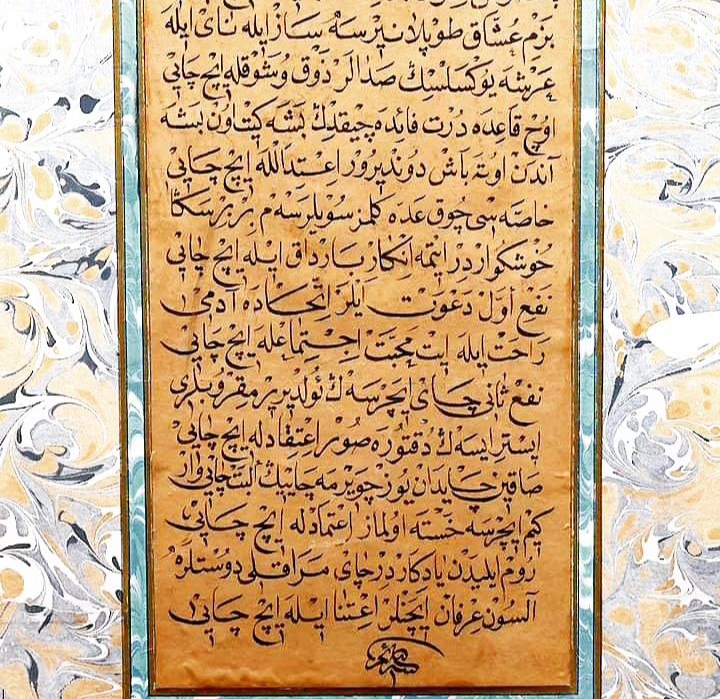 بزم عشاق طوپلانیرسه ساز ایله نای ایله
عرشه یوکسلسڭ صدالر ذوق و شوقله ایچ چایی
اوچ قاعده درت فائده چیقلڭ بشه کیتاون بشه
آندن اوته باش دوندیرور اعتداالله ایچ چایی
خاصه سی چوق عده کلمز سویلرسه م بربر سکا
خوشکواردر ایتمه انکار بارداق ایله ایچ چایی
نفع اول دعوت ایلر اتحاده آدمی
راحت ایله ایت محبت اجتماعله ایچ چایی
نفع ثانی چای ایچرسه ڭ ئولدیریر مقروبلری
ایسترایسه ڭ دقتوره صور اعتقادله ایچ چایی
صاقین چایدان یوز چویرمه چاییڭ البت چایی وار
کیم ایچرسه خسته اولماز اعتمادله ایچ چایی
روم ایلیدن یادکاردر چای مراقلی دوستلره
آلسون عرفان ایچنلر اعتنا ایله ایچ چایی